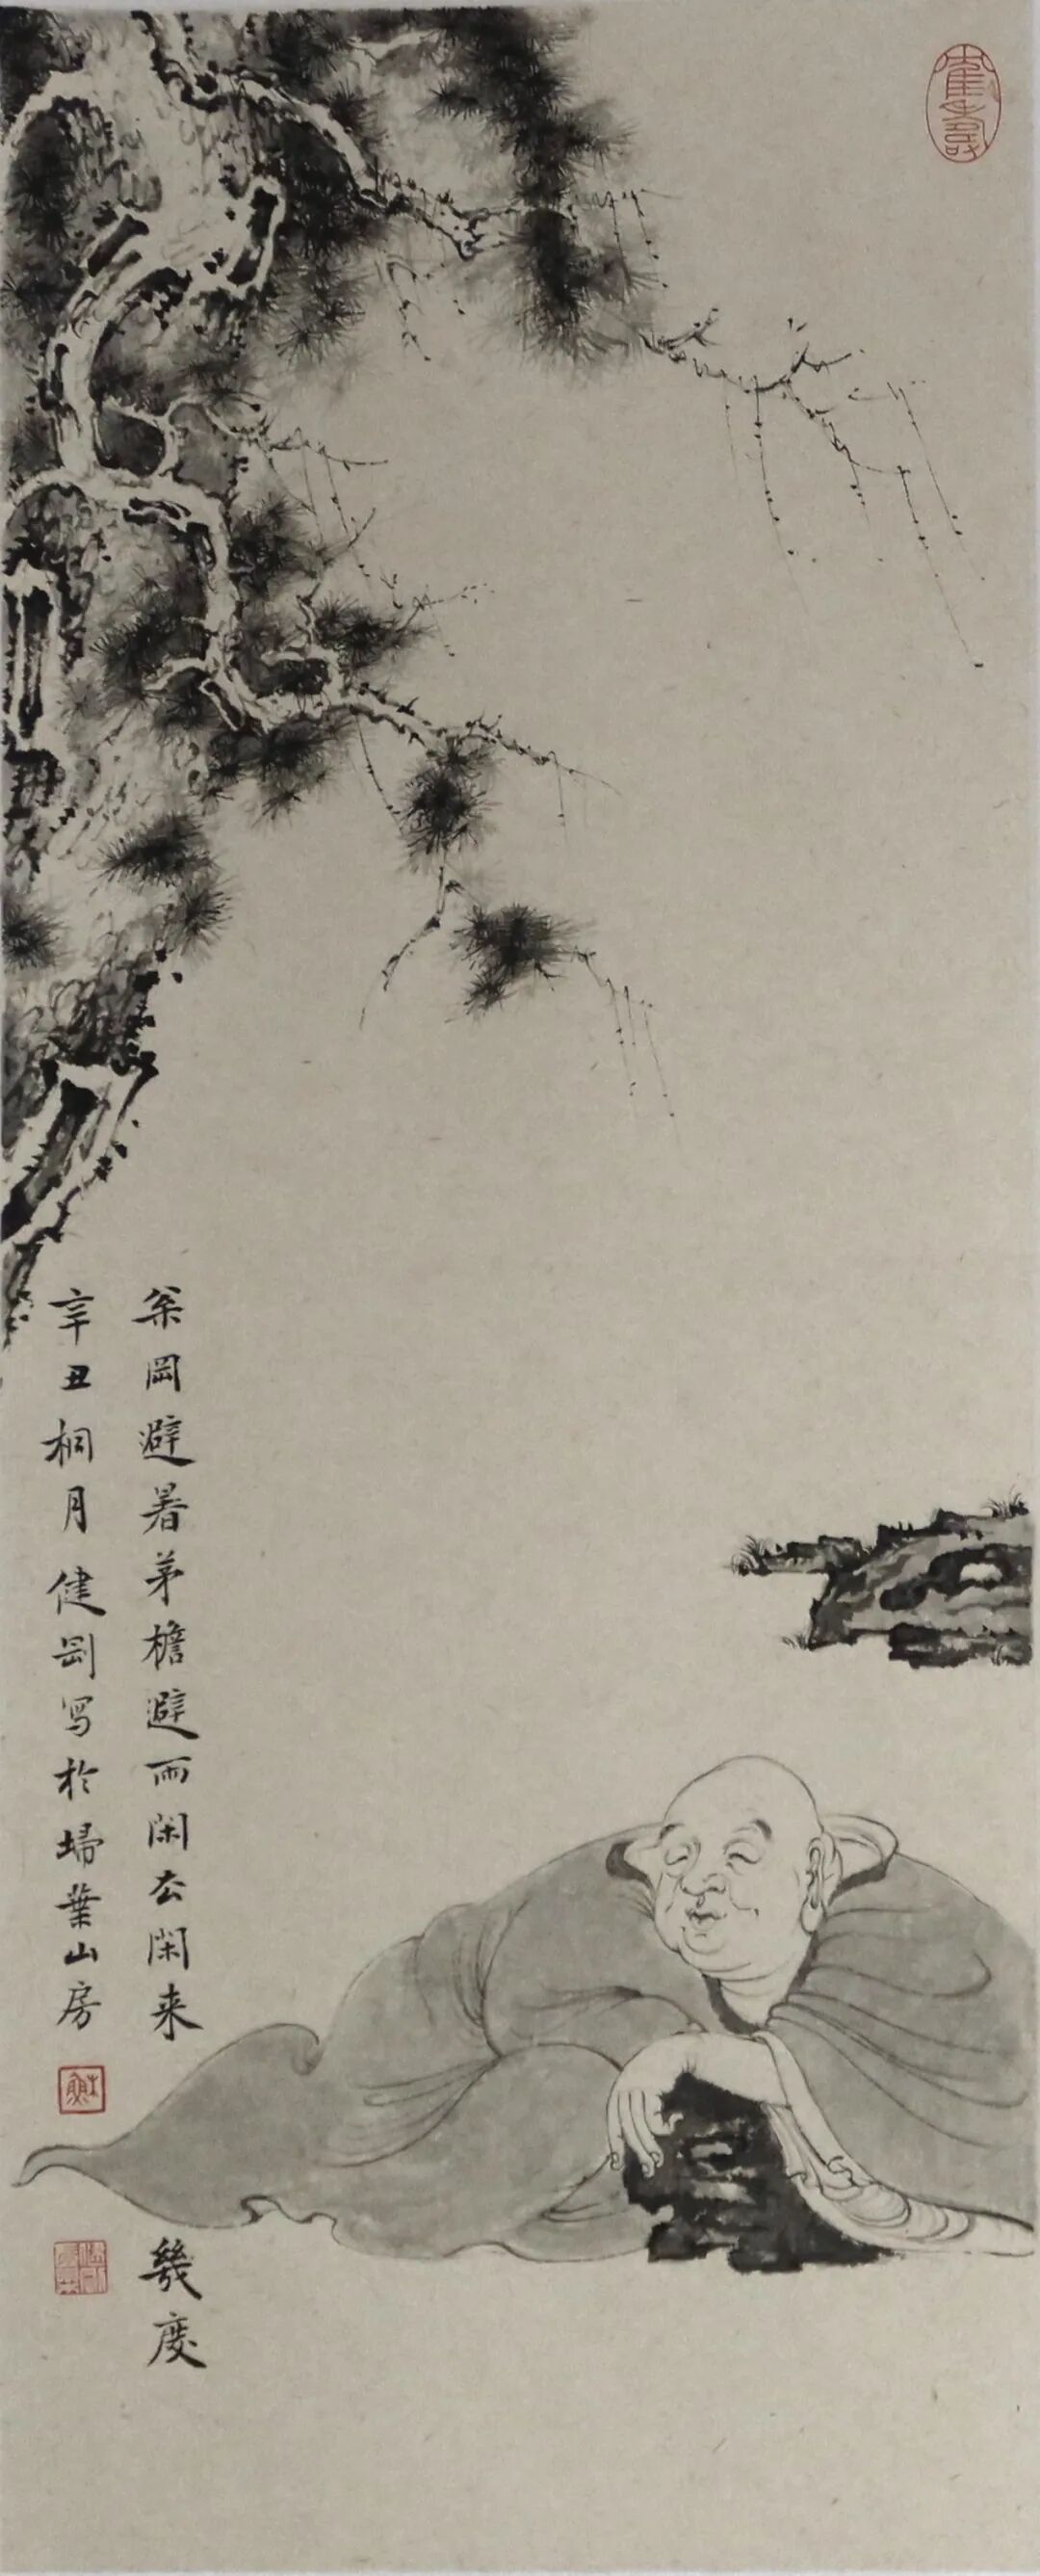 枀岡避暑茅檐避雨閑厺閑来幾度
辛丑桐月健剛写於埽葉山房